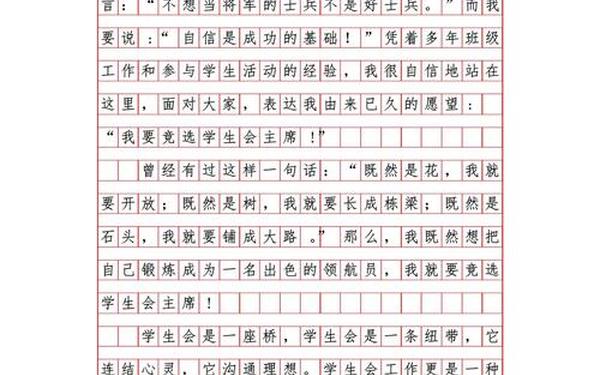 言：“不想当将军的士兵不是好士兵。”而我
要说：“自信是成功的基础！”凭着多年班级
工作和参与学生活动的经验，我很自信地站在
这里，面对大家，表达我由来已久的愿望：
“我要竞选学生会主席！”
曾经有过这样一句话：“既然是花，我就
要开放；既然是树，我就要长成栋梁；既然是
石头，我就要铺成大路。”那么，我既然想把
自己锻炼成为一名出色的领航员，我就要竞选
学生会主席！
学生会是一座桥，学生会是一条纽带，它
连结心灵，它沟通理想。学生会工作更是一种